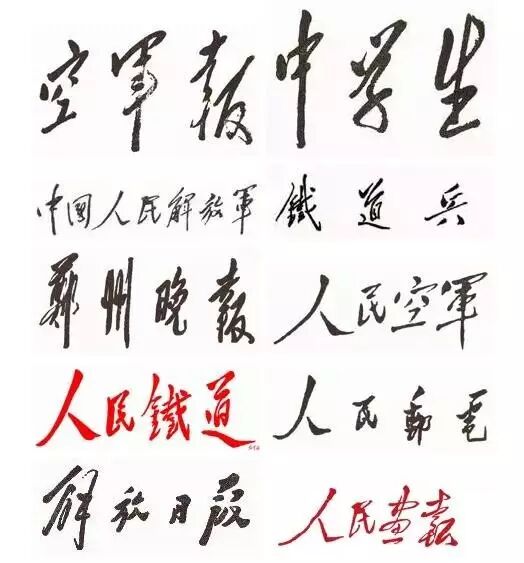 空軍報
中学生
中國人民解放軍
鐵道兵
鄭州晚報
人民空軍
人民鐵道
人民郵電
解放日报
人民画報